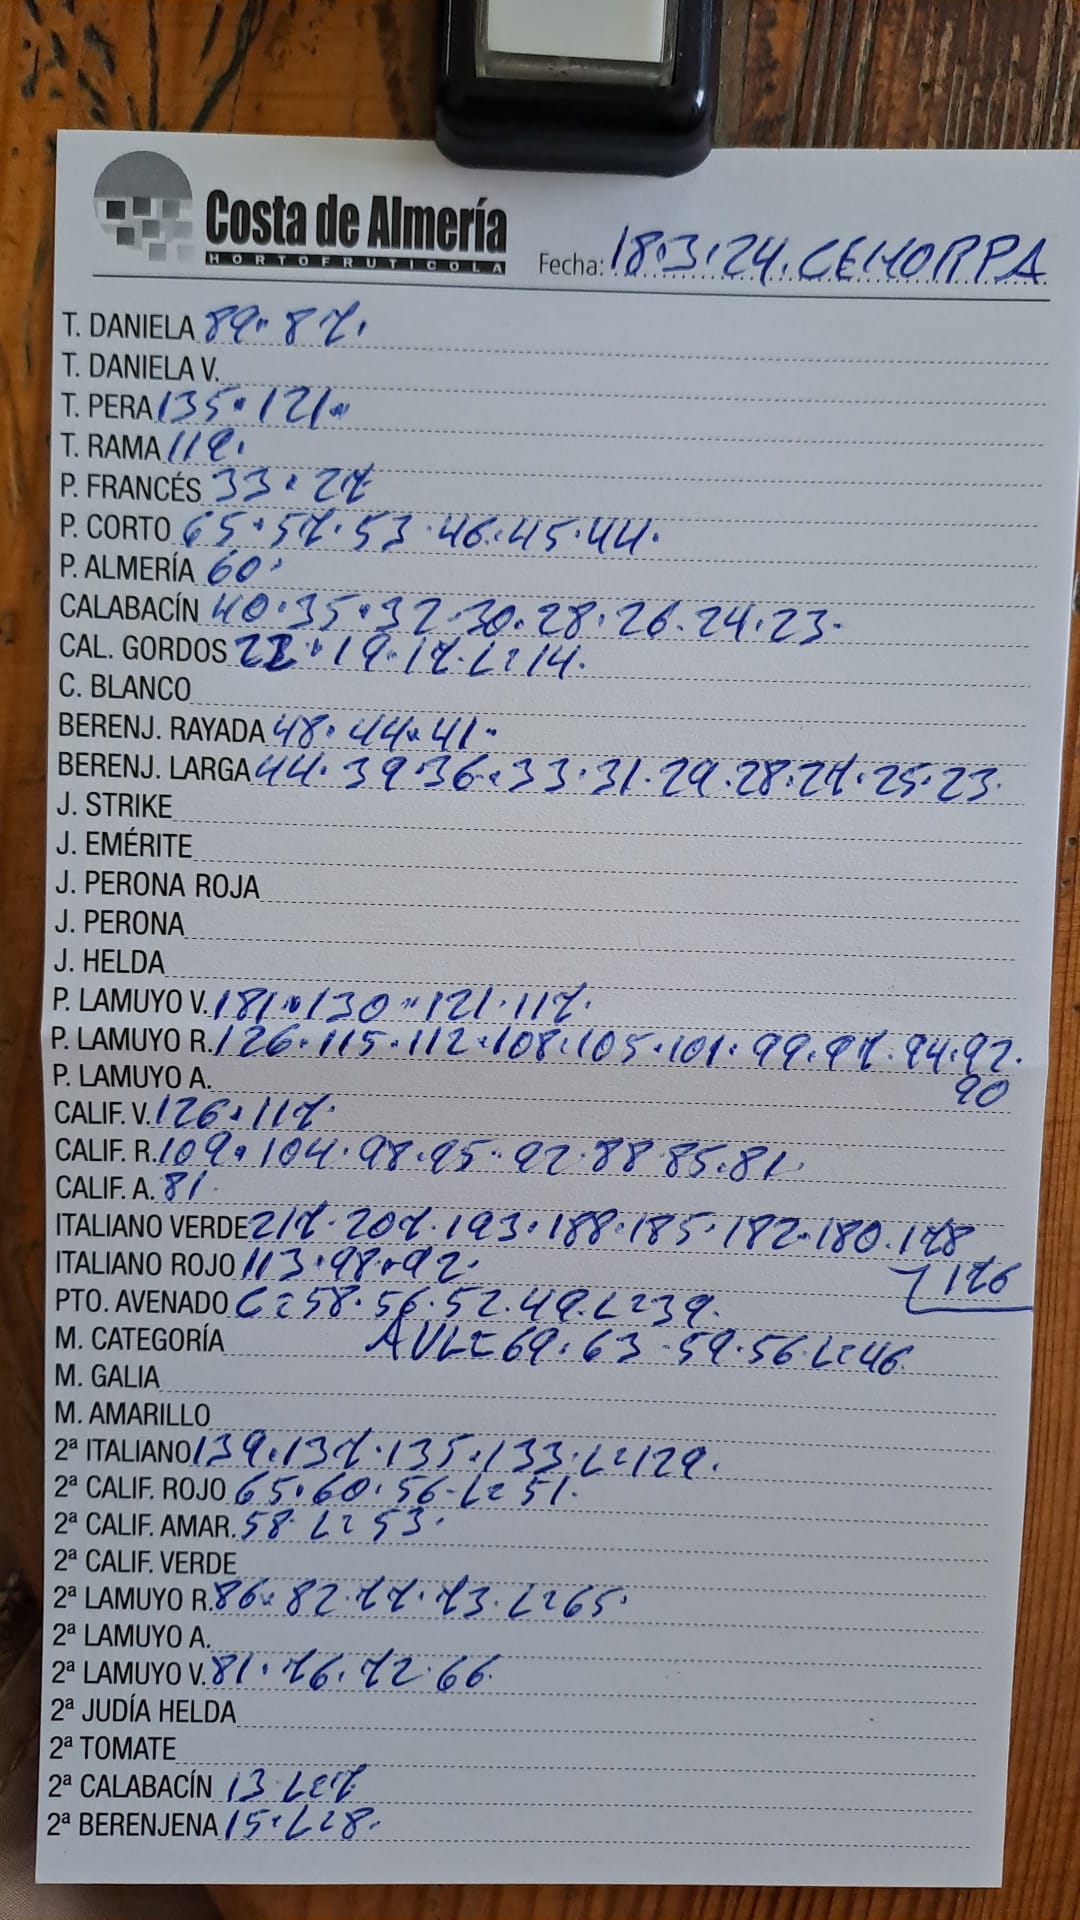 Costa de Almería
HORTOFRUTICOLA
Fecha: 18.3.24. CEHORPA
T. DANIELA 89. 87.
T. DANIELA V.
T. PERA 135. 121.
T. RAMA 119.
P. FRANCÉS 33. 27
P. CORTO 65. 57. 53. 46. 45. 44.
P. ALMERÍA 60.
CALABACÍN 40. 35. 32. 30. 28. 26. 24. 23.
CAL. GORDOS 22. 19. 17. L=14.
C. BLANCO
BERENJ. RAYADA 48. 44. 41.
BERENJ. LARGA 44. 39. 36. 33. 31. 29. 28. 27. 25. 23.
J. STRIKE
J. EMÉRITE
J. PERONA ROJA
J. PERONA
J. HELDA
P. LAMUYO V. 181. 130. 121. 117.
P. LAMUYO R. 126. 115. 112. 108. 105. 101. 99. 97. 94. 92.
P. LAMUYO A. 90
CALIF. V. 126. 117.
CALIF. R. 109. 104. 98. 95. 92. 88. 85. 81.
CALIF. A. 81.
ITALIANO VERDE 217. 207. 193. 188. 185. 182. 180. 178
ITALIANO ROJO 113. 98. 92. 176
PTO. AVENADO C=58. 56. 52. 49. L=39.
M. CATEGORÍA AVL=69. 63. 59. 56. L=46.
M. GALIA
M. AMARILLO
2ª ITALIANO 139. 137. 135. 133. L=129.
2ª CALIF. ROJO 65. 60. 56. L=51.
2ª CALIF. AMAR. 58. L=53.
2ª CALIF. VERDE
2ª LAMUYO R. 86. 82. 77. 73. L=65.
2ª LAMUYO A.
2ª LAMUYO V. 81. 76. 72. 66.
2ª JUDÍA HELDA
2ª TOMATE
2ª CALABACÍN 13. L=7
2ª BERENJENA 15. L=8.